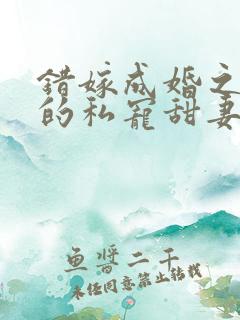 错嫁成婚之
的私宠甜妻
鱼酱二千
未经同意禁止转载